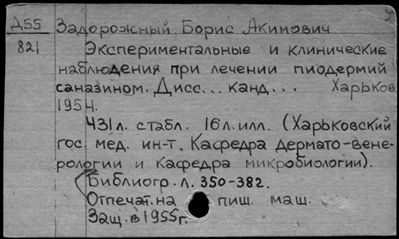 Д55 Задорожный, Борис Акимович
821 Экспериментальные и клинические
наблюдения при лечении пиодермий
саназином. Дисс... канд... Харьков
1954.
431 л. с табл. 16 л. илл. (Харьковский
гос. мед. ин-т. Кафедра дермато-вене-
рологии и Кафедра микробиологии).
Библиогр. л. 350-382.
Отпечат. на пиш. маш.
Защ. в 1955 г.